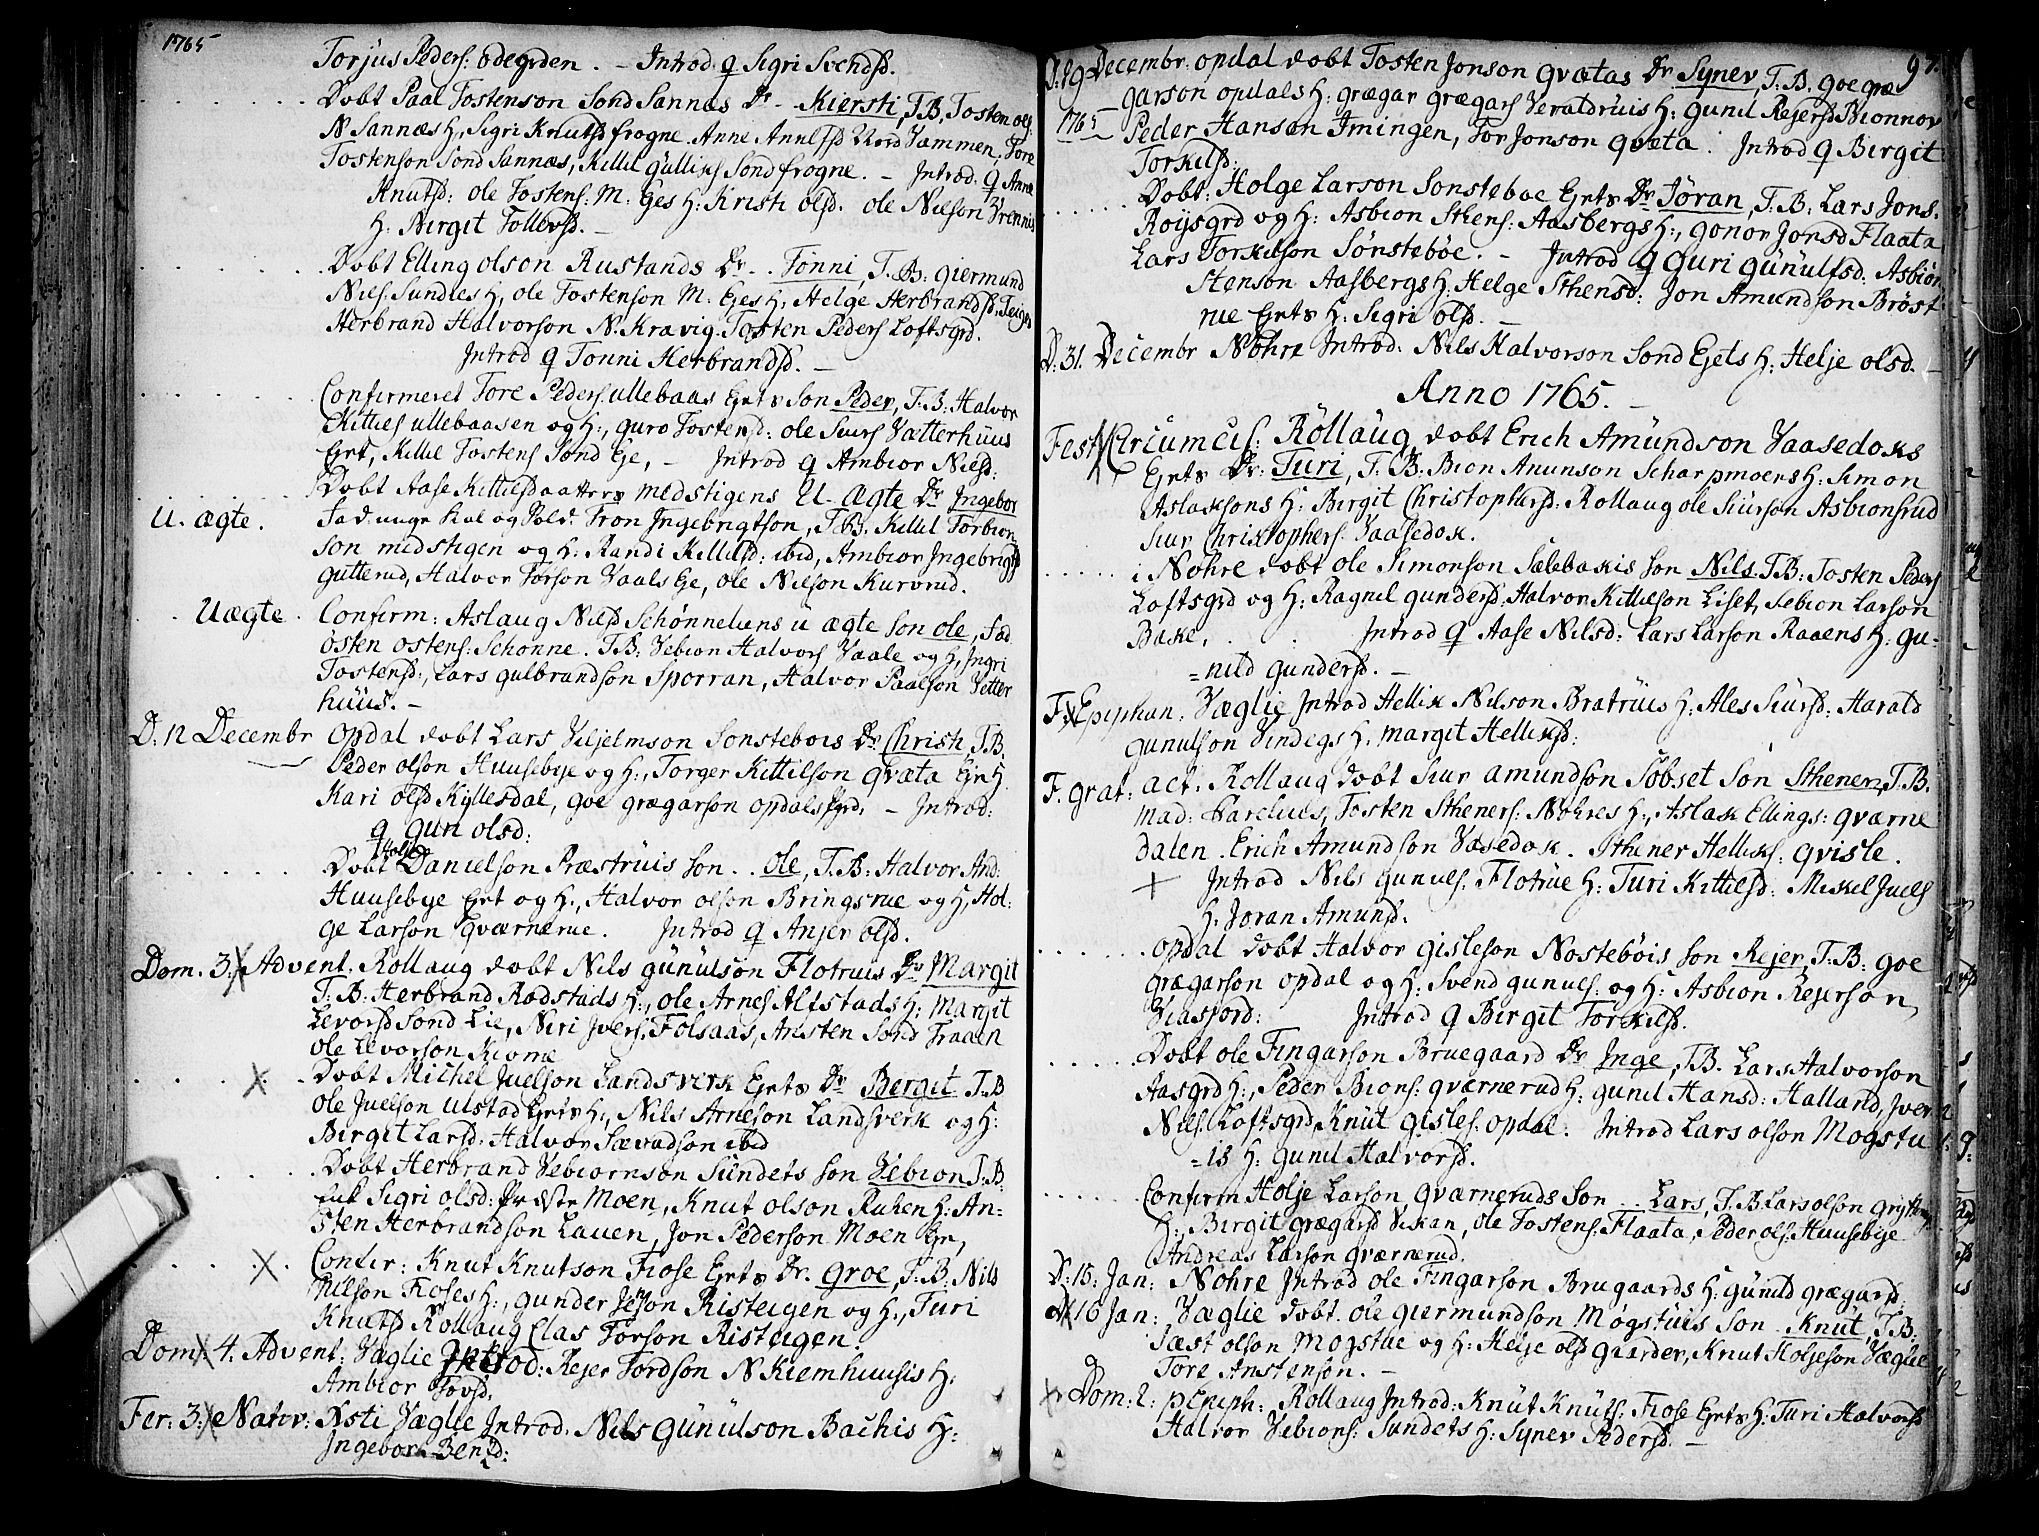 1765
Torjus Peders: ødegrden. - Introd. Q Sigri Svendsd.
Døbt Paal Tostenson Sønd Sannæs Dr - Kiersti, T.B. Tosten ols:
N Sannæs H, Sigri Knutsd frogne. Anne Annesd Nord Vammen, Tore
Tostenson Sønd Sannæs, Killil Gulliks Sønd frogne. - Introd. Q Anne
Knutsd: ole Tostens: M: Ges H: Kristi olsd. ole Nilson Vrennis
H: Birgit Tollevsd. -
Døbt Elling olson Rustands Dr - Tønni, T.B: giermund
Nils: Sundres H, ole Tostenson M. Ejes H, Helge Herbrandsd, Teigen
Herbrand Halvorson N. Kravig. Tosten Peders Loftsgrd.
Introd Q Tonni Herbrandsd. -
Confirmeret Tore Peders: ullebaas Ejets Son Peder, T.B: Halvor
Kitties ullebaasen og H:, guro Tostensd: ole Siurs Vætterhuus
Ejet, Killil Tostens Sønd Eje, - Introd Q Ambior Nielsd:
Døbt Aase Kittilsdaatters medstigens U-ægte Dr Ingebor
U. ægte. Fad. unge Kal og Sold. Tron Ingebrigtson, T.B: Killil Torbion
son medstigen og H: Randi Killilsd: ibid, Ambior Ingebrigtsd
gutterud, Halvor Torson Vaals Eje, ole Nilson Kurvrud.
Uægte. Confirm: Aslaug Nilsd Schønneliens u ægte son ole, Fad
østen ostens: Schønne. T.B: Vebion Halvors Vaale og H, Ingri
Tostensd:, Lars gulbrandson Sporran, Halvor Paalson Vetter
huus. -
D: 12 Decembr Opdal døbt Lars Viljelmson Sønstebøis Dr Christi, T.B.
Peder olson Huusebye og H:, Torger Kittilson Qvæta Eje H
Kari olsd Kyllesdal, goe grægarson opdals Pgrd. - Introd:
Q Gun olsd:
Døbt Holje Danielson Præstruis son . . Ole, T.B: Halvor And:
Huusebye Ejet og H:, Halvor olson Bringsrue og H, Hol:
ge Larson Qværnerue. Introd Q Anjer olsd.
Dom. 3. Advent. Rollaug døbt Nils gunulson Flotruis Dr Margit
T.B: Herbrand Rødstads H:, ole Arnes Alfstads H: Margit
Levorsd Sønd Lie, Niri Ivers: Folsaas, Ansten Sønd Traaen
ole Levorson Kiome
Døbt Michel Juelson Landsverk Ejets Dr Bergit T.B
ole Juelson ulstad Ejets H:, Nils Arneson Landsverk og H:
Birgit Larsd: Halvor Sævadson ibid
Døbt Herbrand Vebiornson Sundets son Vebion T.B:
Sigri olsd: Præste Moen, Knut olson Ruhen H: An=
sten Herbrandson Lauen, Jon Pederson Moen Eje,
Confir: Knut Knutson Fiose Ejets Dr. groe, T.B: Nils
Nilson Fioses H:, gunder Jeson Risteigen og H:, Turi
Knutsd Rollaug Clas Torson Risteigen.
Dom. 4. Advent: Vaglie Introd: Rejer Tordson N Kiemhuusis H:
Ambior Tovsd.
Fer: 3: Nativ: Xsti Væglie Introd. Nils Gunulson Bachis H:
Ingebor Bend:
D: 19 Decembr: opdal døbt Tosten Jonson Qvætas Dr Synev, T.B. goe græ
97.
1765 garson opdals H: grægar grægars Veraldruis H: Gunil Rejersd Bionnov
Peder Hanson Imingen, Tor Jonson Qvæta. Introd Q Birgit
Torkilsd:
Døbt: Holge Larson Sønsteboe Ejets Dr Jøran, T.B: Lars Jons.
Roysgrd og H: Asbion Sthens: Aasbergs H:, gonor Jonsd Flaata
Lars Torkilson Sønstebøe. - Introd Q Guri Gunulfsd: Asbiøn
Stenson Aasbergs H: Helge Sthensd: Jon Amundson Brøst
rue Ejets H: Sigri olsd. -
D: 31. Decembr Nohre Introd: Nils Halvorson Sønd Ejets H: Helje olsd. -
Anno 1765. -
Fest Circumcis: Röllaug døbt Erich Amundson Vaasedoks
Ejets Dr: Turi, T.B. Bion Anunson Scharpmoens H: Simon
Aslaksons H: Birgit Christophersd: Rollaug ole Siurson Asbionsrud
Siur Christophers: Vaasedok.
i Nohre døbt ole Simonson Sælebakis son Nils T.B: Tosten Peders
Loftsgrd og H: Ragnil gundersd, Halvor Kittilson Liset, Sebion Larson
Bake. Introd Q Aase Nilsd: Lars Larson Raaens H: gu-
=nild gundersd. -
F. Epiphan: Væglie Introd Hellik Nilson Bratruis H: Ales Siursd: Harald
gunulson Vindegs H: margit Helliksd:
F. grat: act: Rollaug døbt Siur amundson Søbset Son Sthener, T.B.
mad: Parelius, Tosten Stheners: Nohres H:, Aslak Ellings: qværne
dalen. Erich Amundson Vasedok. Sthener Helliks: qvisle.
Introd Nils gunuls: Flotrue H: Turi Kittilsd: Mikel Juels
H: Joran Amunsd:
opdal døbt Halvor gisleson Nostebøis son Rejer, T.B: goe
grægarson opdal og H: Svend gunuls: og H: Asbion Rejerson,
Viasjord: Introd Q Birgit Torkilsd.
Døbt ole Fingarson Bruegaard Dr Inge, T.B. Lars Halvorson
Aasgrd H:, Peder Bions: qværnerud H: gunil Hansd: Halland, Iver
Nils: Loftsgrd, Knut Gisles: opdal: Introd Lars olson Mogstu
=is H: Gunil Halvorsd.
Confirm Holje Larson Qværneruds Son . . Lars, T.B. Lars olson gryt
H:, Birgit grægarsd Vikan, ole Tostens: Flaata, Peder ols: Huusebye
Andreas Larson Qværnerud.
D: 15: Jan: Nohre Introd ole Fingarson Brugaards H: Gunild grægarsd:
D 16 Jan: Væglie døbt. ole giermundson Mogstuis Son . Knut, T.B:
Sæst olson Mogstue og H: Helje olsd Giarder, Knut Holjeson Væglie
Tore Anstenson. -
Dom: 2: p Epiph: Rollaug Introd: Knut Knuts: Fiose Ejets H: Turi Halvorsd
Halvor Vebions: Sundets H: Synev Pedersd. -